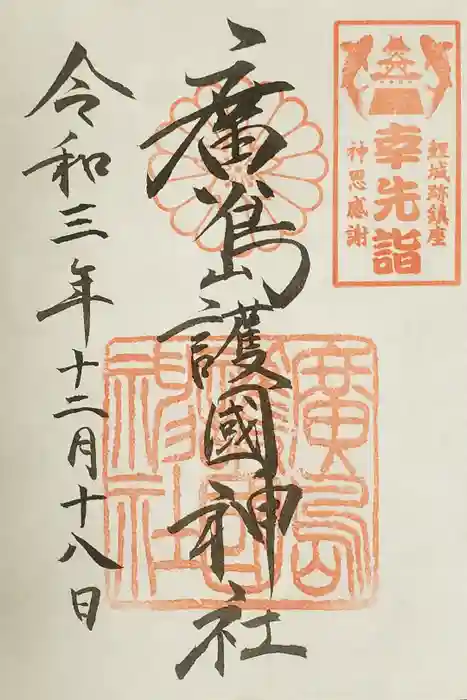 鯉城跡鎮座
幸先詣
神恩感謝
廣島護國神社
令和三年十二月十八日
廣島
護國
神社